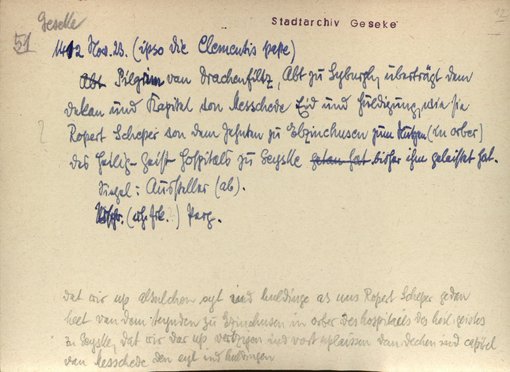 Geseke
Stadtarchiv Geseke
51
12
1412 Nov. 23. (ipso die Clementis pape)
Abt Pilgrim van Drachenfiltz, Abt zu Syburgh, überträgt dem
Dekan und Kapitel von Messchede Eid und Huldigung, wie sie
Ropert Scheper von dem Zehnten zu Ebzinchusen zum Nutzen (in orber)
des Heilig-Geist-Hospitals zu Geyske getan hat bisher ihm geleistet hat.
Siegel: Aussteller (ab).
(Urk.) Perg.
dat wir up alsulchen eyt ind huldinge as uns Ropert Scheper gedan
heet van dem teynden zu Ebzinchusen in orber des hospitaels des heil. geistes
zu Geyske, dat wir das up verzigen ind vort uplaissen dem dechen ind capitel
van Messchede den eyt ind huldingen